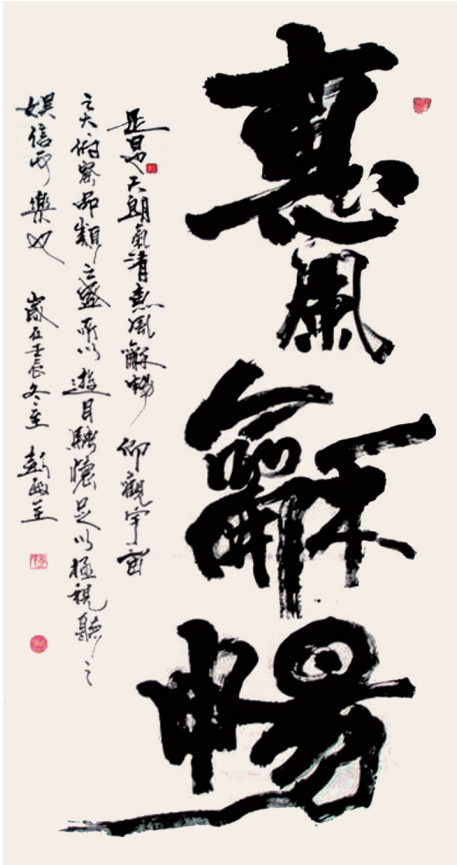 惠風龢暢
是日也天朗氣清惠風龢暢仰觀宇宙
之大俯察品類之盛所以遊目騁懷足以極視聽之
娛信可樂也 歲在壬辰冬至 彭